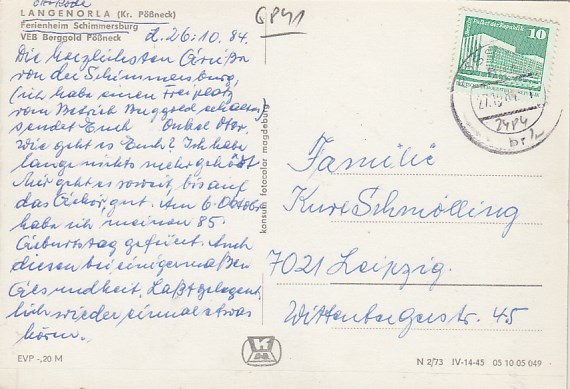 LANGENORLA (Kr. Pößneck)
Ferienheim Schimmersburg
VEB Berggold Pößneck
d. 26. 10. 84.
Die herzlichsten Grüße
von der Schimmersburg,
(ich habe einen Freiplatz
vom Betrieb Berggold erhalten
sendet Euch Onkel Otto.
Wie geht es Euch? Ich habe
lange nichts mehr gehört
Mir geht es soweit, bis auf
das Gehör, gut. Am 6. Oktober
habe ich meinen 85.
Geburtstag gefeiert. Auch
diesen bei einigermaßen
Gesundheit. Laßt gelegent
lich wieder einmal etwas
hören.
EVP -,20 M
konsum fotocolor magdeburg
10
Familie
Kurt Schmölling
7021 Leipzig.
Wittenbergerstr. 45
N 2/73 IV-14-45 05 10 05 049